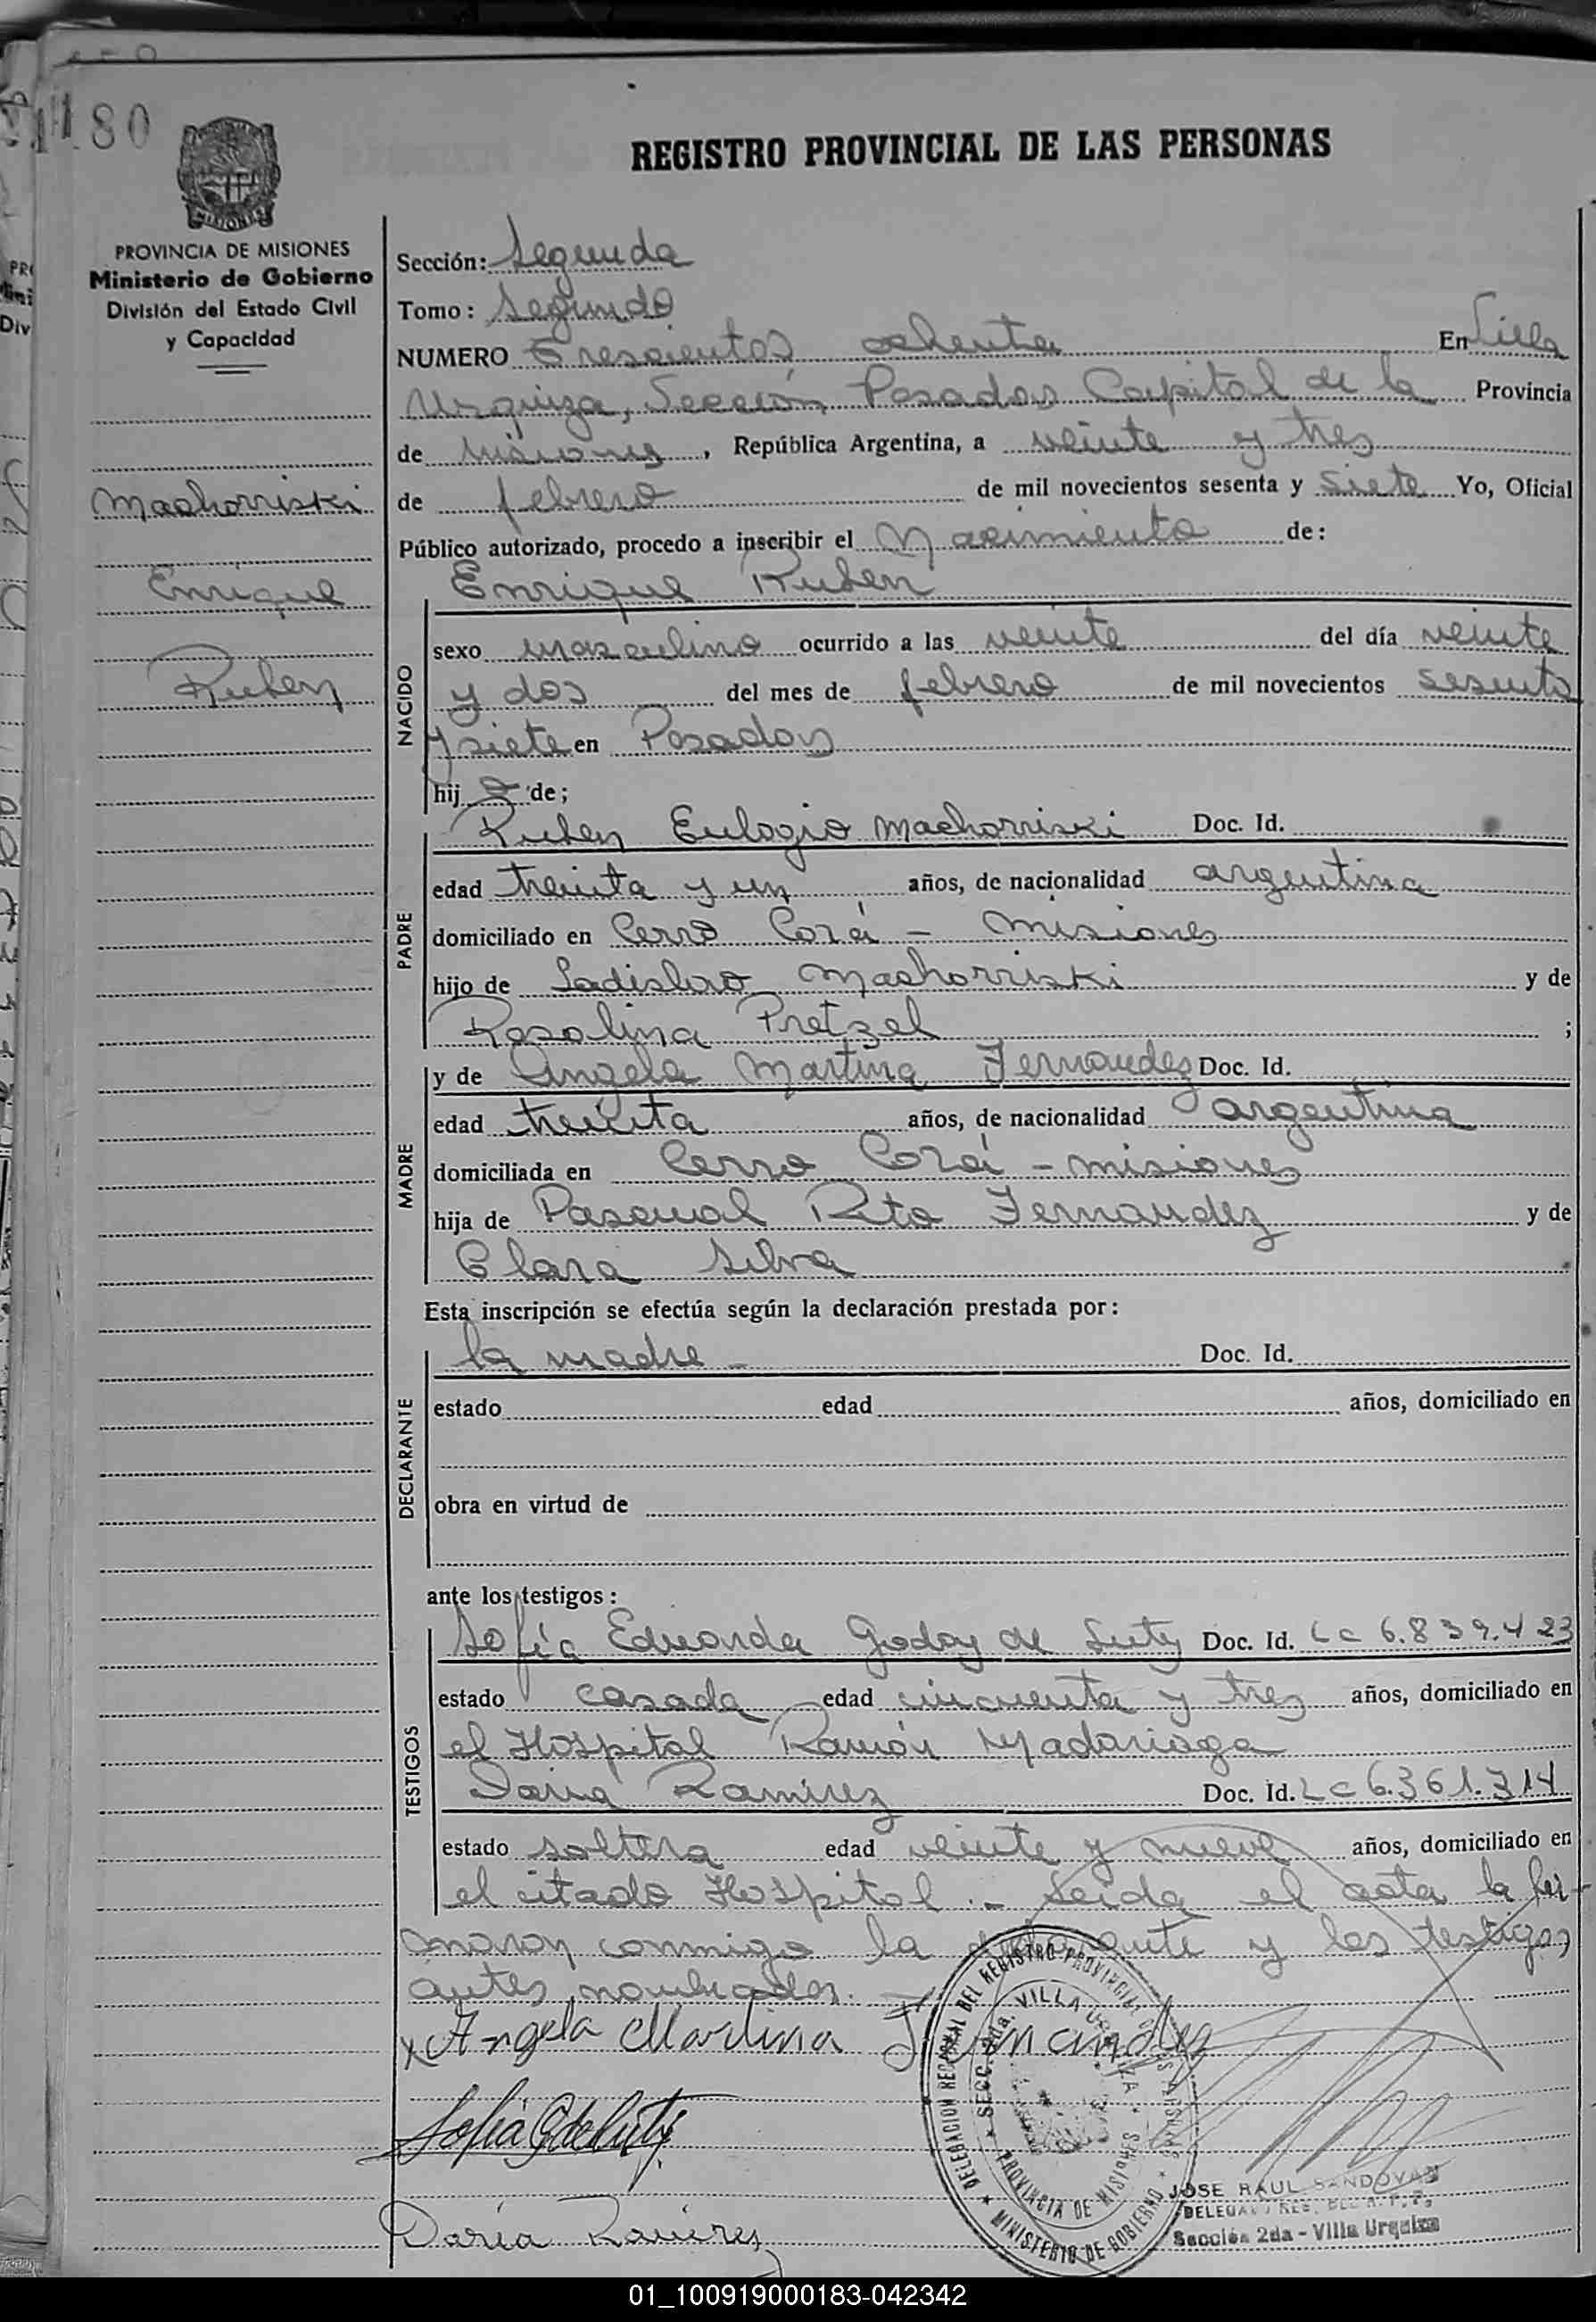 180
REGISTRO PROVINCIAL DE LAS PERSONAS
MISIONES
PROVINCIA DE MISIONES
Ministerio de Gobierno
División del Estado Civil
y Capacidad
Machorriski
Enrique
Ruben
Sección: Segunda
Tomo: Segundo
NUMERO Trescientos ochenta En Villa
Urquiza, Sección Posadas Capital de la Provincia
de Misiones, República Argentina, a veinte y tres
de febrero de mil novecientos sesenta y siete Yo, Oficial
Público autorizado, procedo a inscribir el Nacimiento de:
Enrique Ruben
NACIDO
sexo masculino ocurrido a las veinte del día veinte
y dos del mes de febrero de mil novecientos sesenta
y siete en Posadas
hij o de;
PADRE
Ruben Eulogio Machorriski Doc. Id.
edad treinta y un años, de nacionalidad argentina
domiciliado en Cerro Corá - Misiones
hijo de Ladislao Machorriski y de
Rosalina Pretzel ;
MADRE
y de Angela Martina Fernandez Doc. Id.
edad treinta años, de nacionalidad argentina
domiciliada en Cerro Corá - Misiones
hija de Pascual Rito Fernandez y de
Clara Silva
Esta inscripción se efectúa según la declaración prestada por:
DECLARANTE
la madre - Doc. Id.
estado edad años, domiciliado en
obra en virtud de
ante los testigos:
TESTIGOS
Sofía Eduarda Godoy de Doc. Id. Lc 6.839.423
estado casada edad cincuenta y tres años, domiciliado en
el Hospital Ramón Madariaga
Daria Ramirez Doc. Id. Lc 6.361.314
estado soltera edad veinte y nueve años, domiciliado en
el citado Hospital.- Leida el acta la fir-
maron conmigo la declarante y los testigos
antes nombrados. -
x Angela Martina Fernandez
Sofia G de
Daria Ramires
DELEGACION REGIONAL DEL REGISTRO PROVINCIAL DE LAS PERSONAS
SECC. 2da. VILLA URQUIZA
PROVINCIA DE MISIONES
MINISTERIO DE GOBIERNO
JOSE RAUL SANDOVAL
Sección 2da - Villa Urquiza
01_100919000183-042342